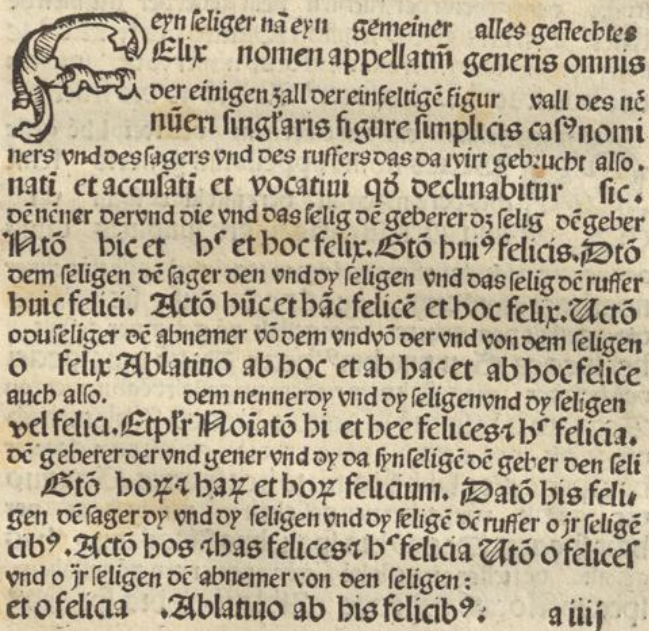 eyn seliger nā eyn gemeiner alles geslechtes
FElix nomen appellatiū generis omnis
der einigen zall der einfeltigē figur vall des nē
nūeri singľaris figure simplicis casꝰ nomi
ners vnd des sagers vnd des ruffers das da wirt gebrucht also.
nati et accusati et vocatiui qð declinabitur sic.
dē nēner der vnd die vnd das selig dē geberer dʒ selig dē geber
Ntō hic et hᶜ et hoc felix. Gtō huiꝰ felicis. Dtō
dem seligen dē sager den vnd dy seligen vnd das selig dē ruffer
huic felici. Actō hūc et hāc felicē et hoc felix. Uctō
o du seliger dē abnemer vō dem vnd vō der vnd von dem seligen
o felix Ablatiuo ab hoc et ab hac et ab hoc felice
auch also. dem nenner dy vnd dy seligen vnd dy seligen
vel felici. Et plr̄ Noīatō hi et hee felices ⁊ hᶜ felicia.
dē geberer der vnd gener vnd dy da synseligē dē geber den seli
Gtō hoꝝ ⁊ haꝝ et hoꝝ felicium. Datō his feli⸗
gen dē sager dy vnd dy seligen vnd dy seligē dē ruffer o jr seligē
cibꝰ. Actō hos ⁊ has felices ⁊ hᶜ felicia Utō o felices
vnd o jr seligen dē abnemer von den seligen:
et o felicia . Ablatiuo ab his felicibꝰ: a iiij